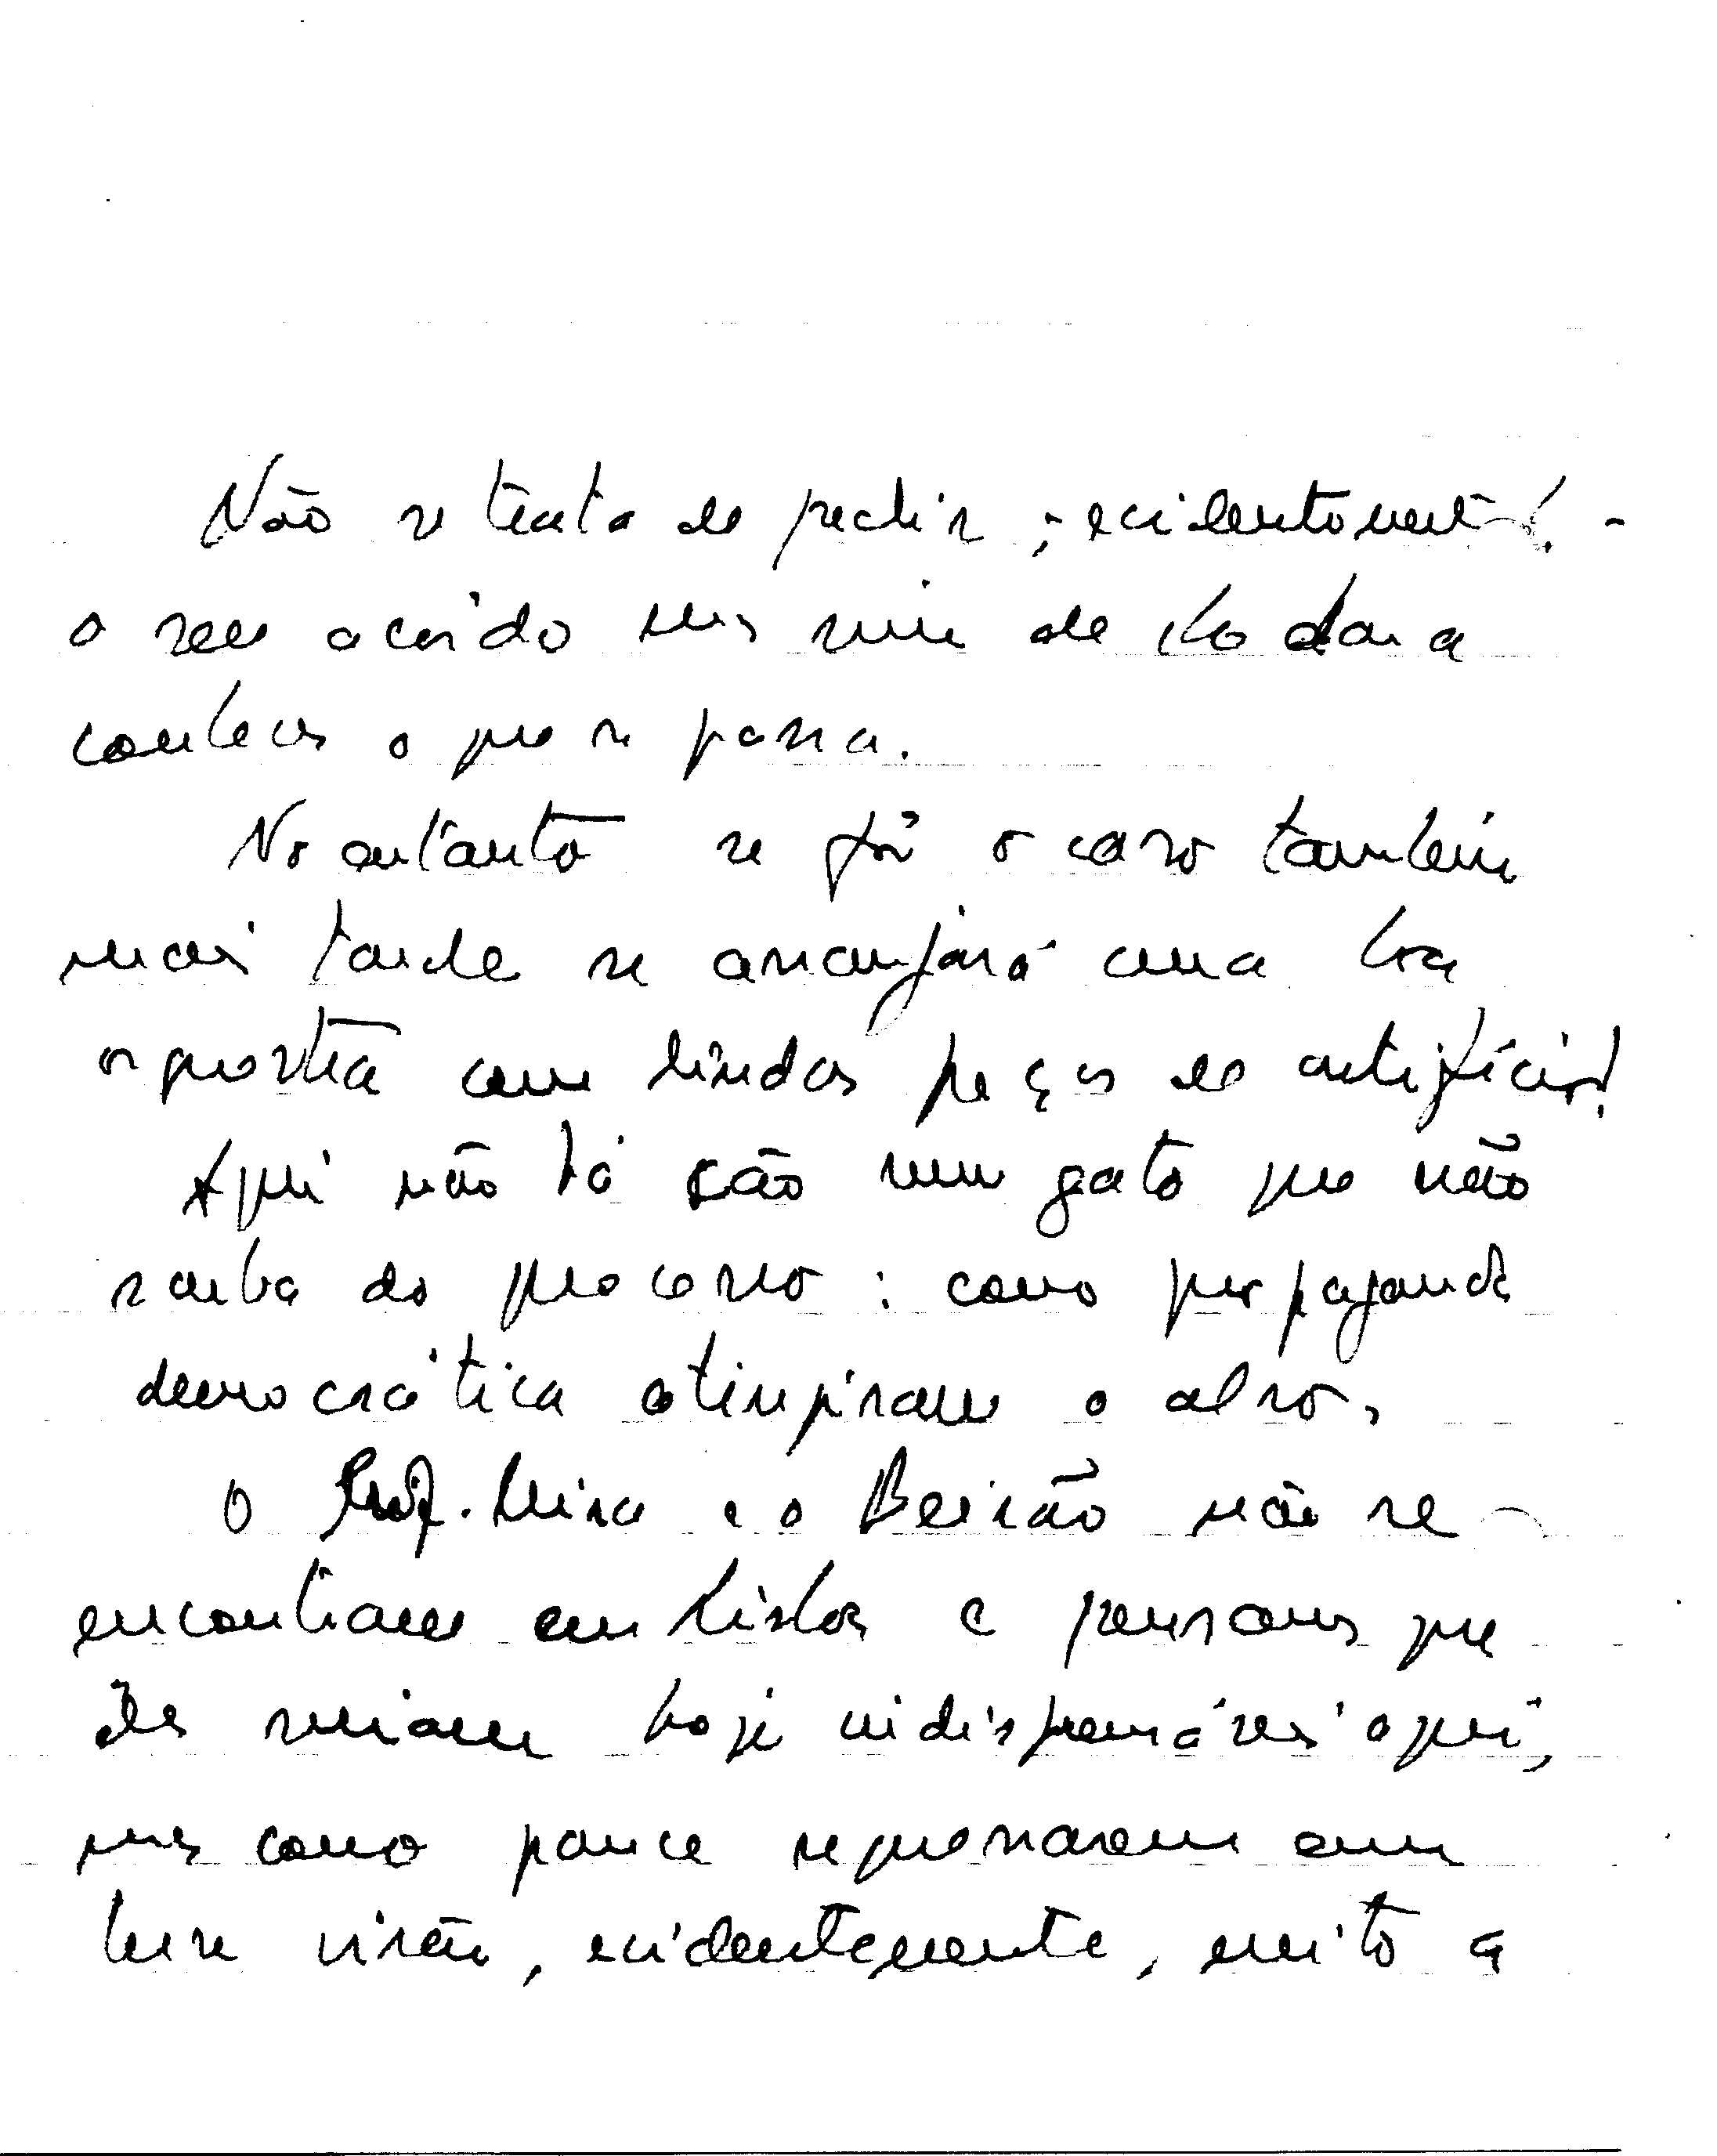 Não se trata de pedir, - evidentemente! -
o seu acordo mas sim de lo dar a
conhecer o que se passa.
No entanto se fôr o caso também
mais tarde se arranjará uma boa
orquestra com lindas peças de artifício!
Aqui não há cão nem gato que não
saiba do processo: como propaganda
democrática atingiram o alvo.
O Prof. Mira e o Beirão não se
encontram em Lisboa e pensamos que
eles seriam hoje indispensáveis aqui,
mas como parece regressarem em
breve virão, evidentemente, muito a